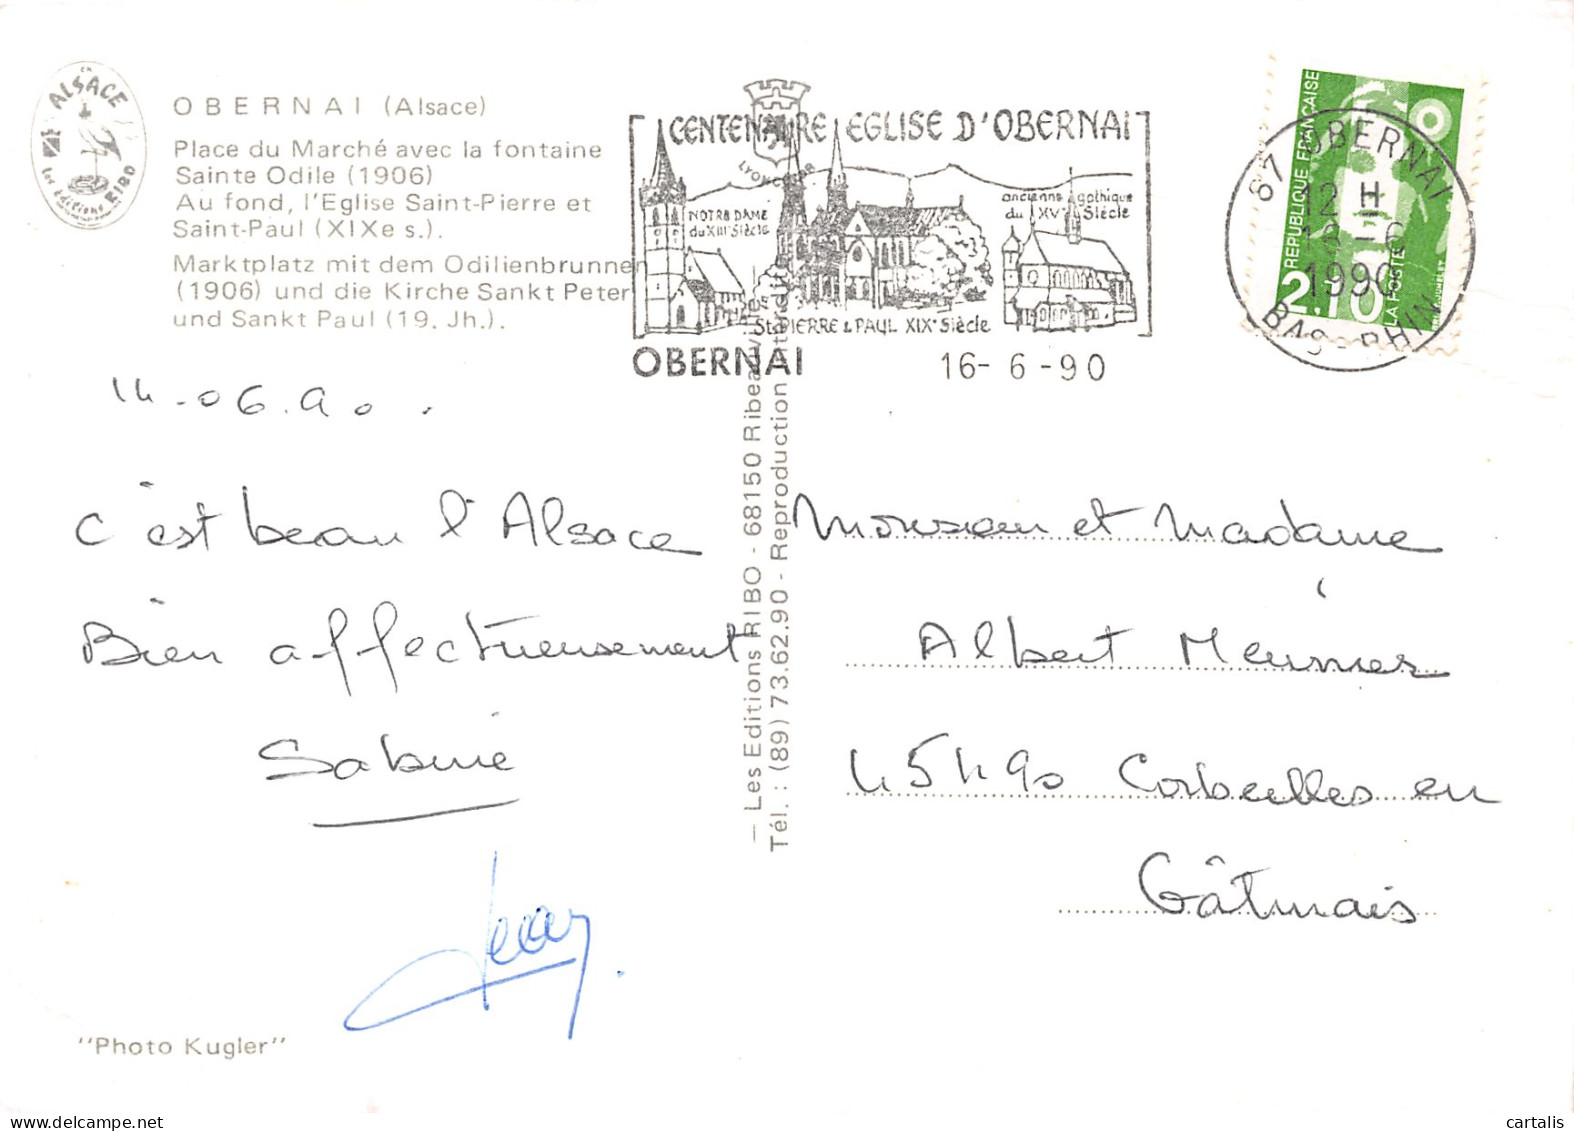 EN
ALSACE
Les éditions RIBO
OBERNAI (Alsace)
Place du Marché avec la fontaine
Sainte Odile (1906)
Au fond, l'Eglise Saint-Pierre et
Saint-Paul (XIXe s.).
Marktplatz mit dem Odilienbrunnen
(1906) und die Kirche Sankt Peter
und Sankt Paul (19. Jh.).
CENTENAIRE EGLISE D'OBERNAI
NOTRE DAME
du XIII° Siècle
ancienne gothique
du XV° Siècle
St PIERRE & PAUL XIX° Siècle
OBERNAI
16- 6 -90
67 OBERNAI
12 H
16 -6
1990
BAS-RHIN
REPUBLIQUE FRANÇAISE
2.10
LA POSTE
14.06.90.
C'est beau l'Alsace
Bien affectueusement
Sabine
Jean
"Photo Kugler"
— Les Editions RIBO - 68150 Ribeauvi
Tél. : (89) 73.62.90 - Reproduction interdite
Monsieur et Madame
Albert Meunier
45490 Corbeilles en
Gâtinais
cartalis